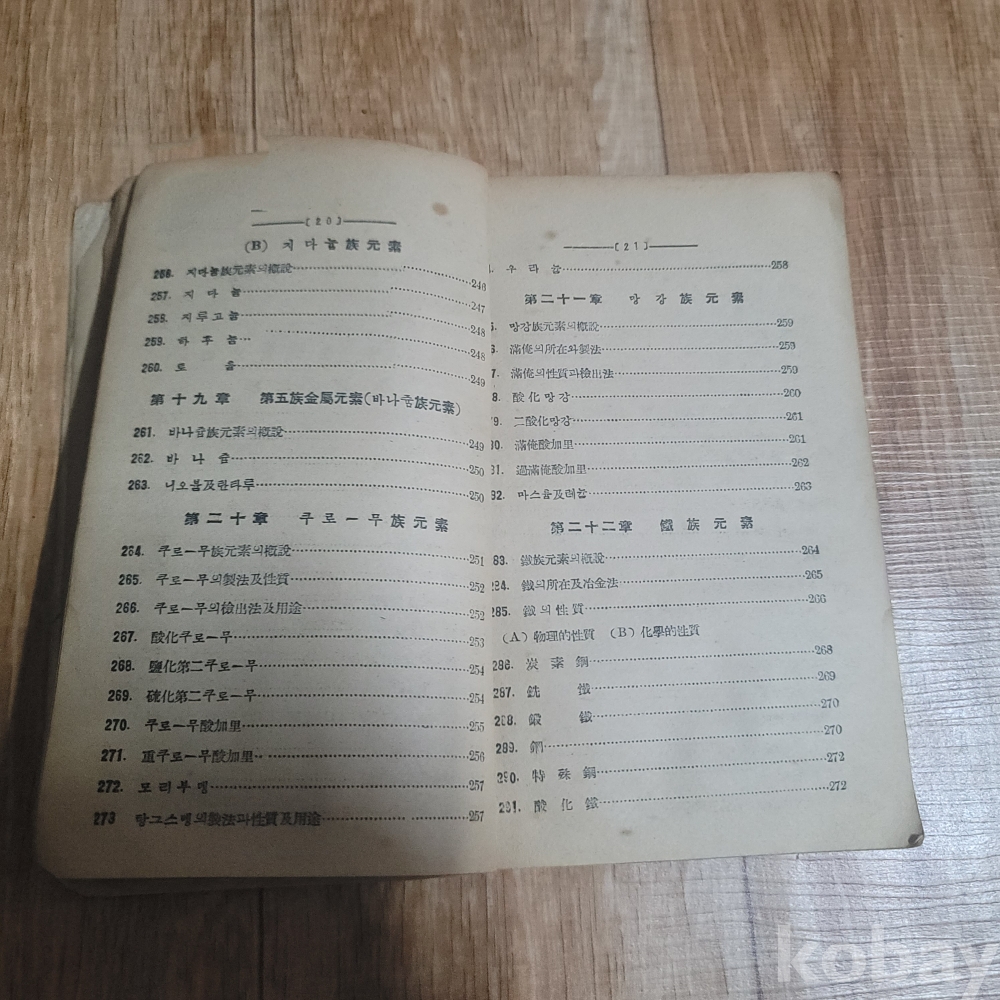 (20)
(B) 지다늄族元素
256. 지다늄族元素의槪說 246
257. 지다늄 247
258. 지루고늄 248
259. 하후늄 248
260. 도 248
第十九章 第五族金屬元素(바나쥼族元素)
261. 바나쥼族元素의槪說 249
262. 바나쥼 250
263. 니오븀及탄타루 250
第二十章 쿠로ー무族元素
264. 쿠로ー무族元素의槪說 251
265. 쿠로ー무의製法及性質 252
266. 쿠로ー무의檢出法及用途 252
267. 酸化쿠로ー무 253
268. 鹽化第二쿠로ー무 254
269. 硫化第二쿠로ー무 254
270. 쿠로ー무酸加里 255
271. 重쿠로ー무酸加里 256
272. 모리부뎅 257
273 탕그스뎅의製法과性質及用途 257
(21)
우라늄 258
第二十一章 망강族元素
망강族元素의槪說 259
滿俺의所在와製法 259
7. 滿俺의性質과檢出法 259
8. 酸化망강 260
79. 二酸化망강 261
80. 滿俺酸加里 261
81. 過滿俺酸加里 262
82. 마스윰及레늄 263
第二十二章 鐵族元素
83. 鐵族元素의槪說 264
284. 鐵의所在及冶金法 265
285. 鐵의性質 266
(A) 物理的性質 (B) 化學的性質
286. 炭素鋼 268
287. 銑鐵 269
288. 鍛鐵 270
289. 鋼 270
290. 特殊鋼 272
291. 酸化鐵 272
kobay